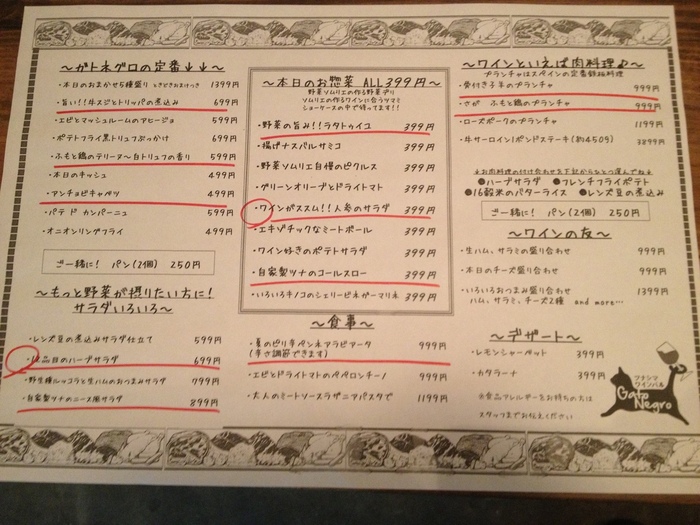 ～ガトネグロの定番↓↓～
・本日のおまかせ5種盛り 1399円
・旨い!!牛スジとトリッパの煮込み 699円
・エビとマッシュルームのアヒージョ 599円
・ポテトフライ黒トリュフぶっかけ 699円
・ふもと鶏のテリーヌ～白トリュフの香り 599円
・本日のキッシュ 499円
・アンチョビキャベツ 499円
・パテ ド カンパーニュ 599円
・オニオンリングフライ 499円
ご一緒に! パン(2個) 250円
～もっと野菜が摂りたい方に!
サラダいろいろ～
・レンズ豆の煮込みサラダ仕立て 599円
品目のハーブサラダ 699円
・野生種ルッコラと生ハムのおつまみサラダ 799円
・自家製ツナのニース風サラダ 899円
～本日のお惣菜 ALL399円～
野菜ソムリエの作る野菜デリ
ソムリエの作るワインに合うツマミ
ショーケースの中で待ってます!!
・野菜の旨み!!ラタトゥイユ 399円
・揚げナスバルサミコ 399円
・野菜ソムリエ自慢のピクルス 399円
・グリーンオリーブとドライトマト 399円
・ワインがススム!!人参のサラダ 399円
・エキゾチックなミートボール 399円
・ワイン好きのポテトサラダ 399円
・自家製ツナのコールスロー 399円
・いろいろキノコのシェリービネガーマリネ 399円
～食事～
・夏のピリ辛ペンネアラビアータ 999円
(辛さ調節できます)
・エビとドライトマトのペペロンチーノ 999円
・大人のミートソースラザニアパスタで 1199円
～ワインといえば肉料理♪～
プランチャはスペインの定番鉄板料理
・骨付き子羊のプランチャ 999円
・さが ふもと鶏のプランチャ 999円
・ローズポークのプランチャ 1199円
・牛サーロイン1ポンドステーキ(約450g) 3899円
↓お肉料理の付け合わせを下記からひとつ選んでね↓
●ハーブサラダ ●フレンチフライポテト
●16穀米のバターライス ●レンズ豆の煮込み
ご一緒に! パン(2個) 250円
～ワインの友～
・生ハム、サラミの盛り合わせ 999円
・本日のチーズ盛り合わせ 999円
・いろいろおつまみ盛り合わせ 1399円
ハム、サラミ、チーズ2種 and more…
～デザート～
・レモンシャーベット 399円
・カタラーナ 399円
※食品アレルギーをお持ちの方は
スタッフまでお伝えください
フナシマ
ワインバル
Gato
Negro